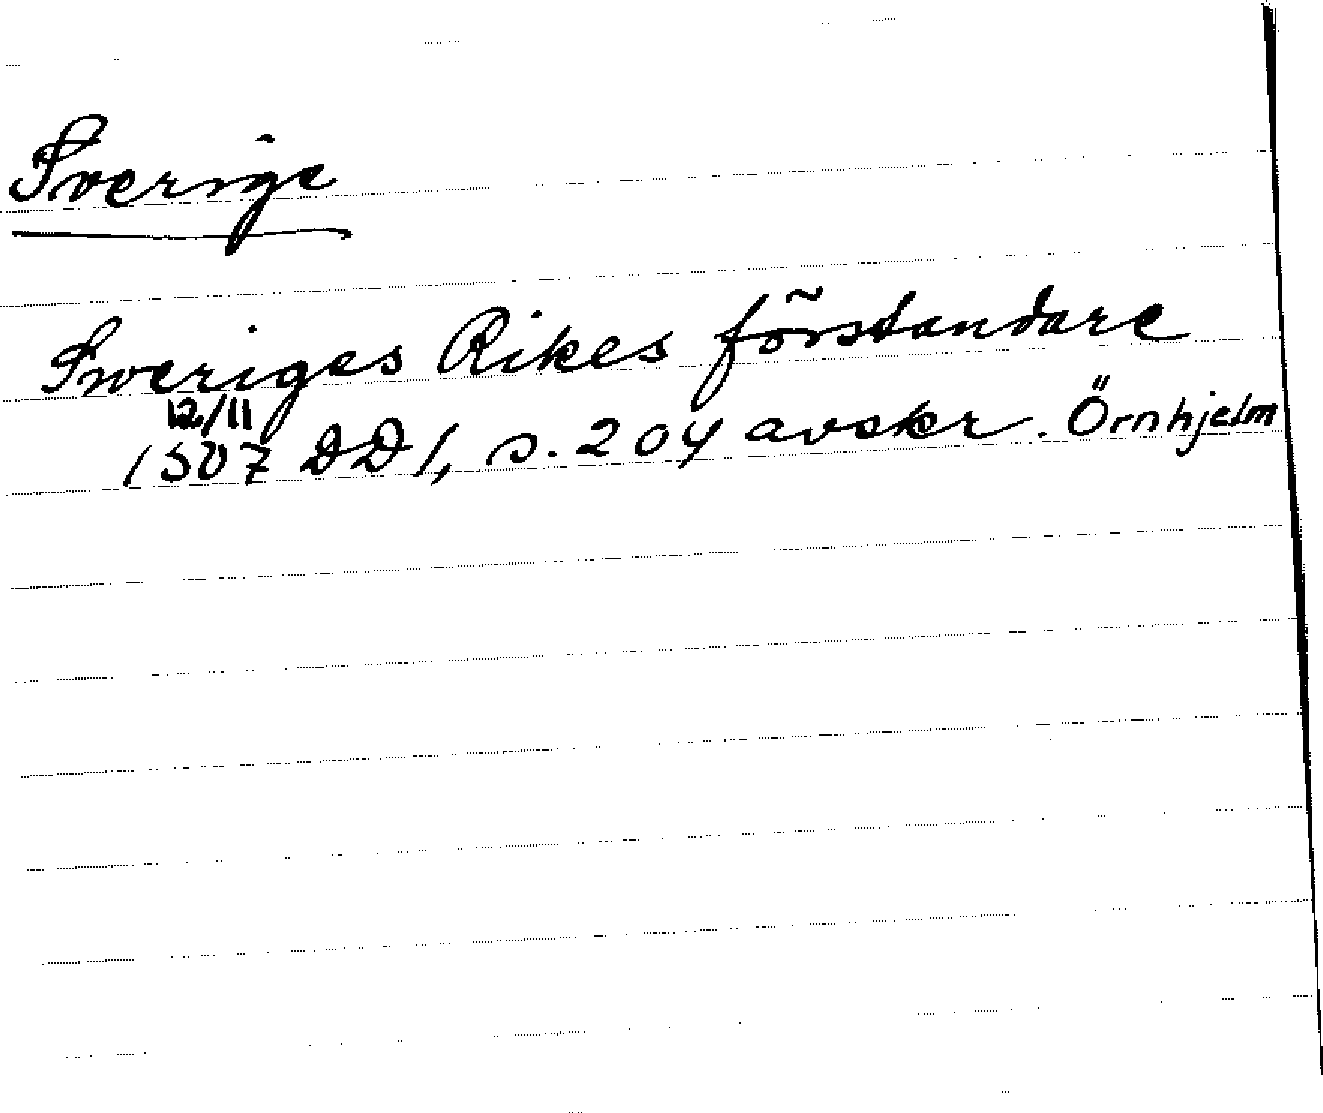 Sverige
Sweriges Rikes förstandare
12/11
1507 DD1, s. 204 avskr. Örnhjelm